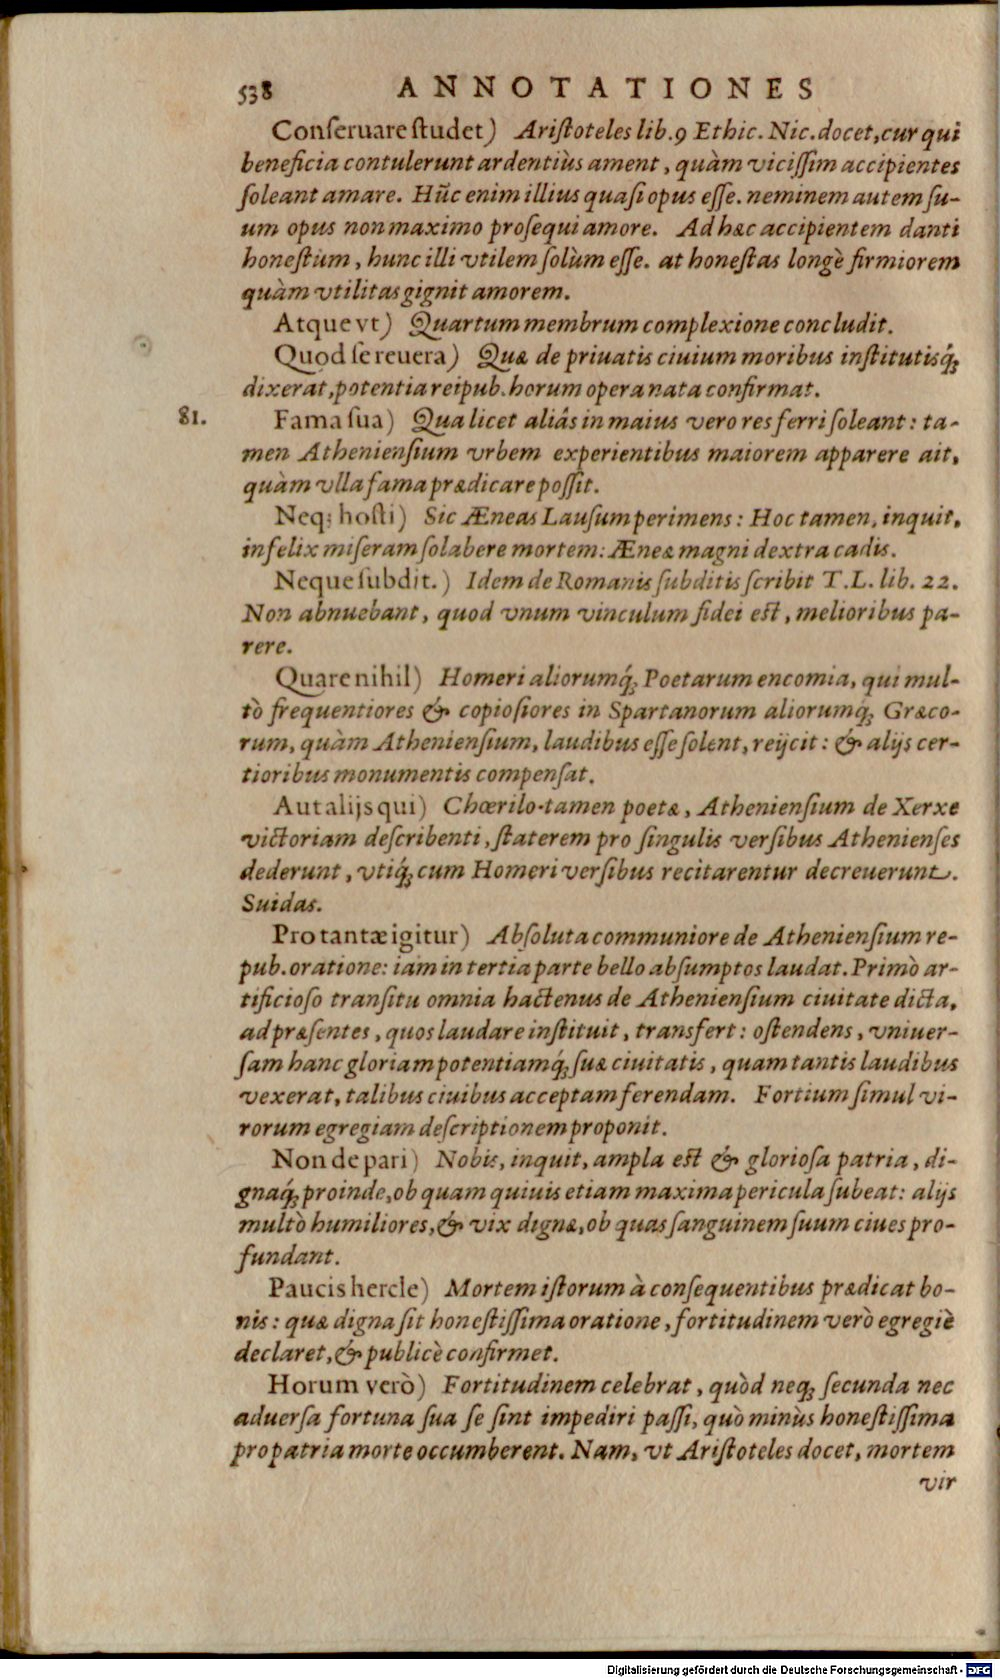 538 ANNOTATIONES
Conſeruare ſtudet) Ariſtoteles lib. 9 Ethic. Nic. docet, cur qui
beneficia contulerunt ardentiùs ament, quàm viciſſim accipientes
ſoleant amare. Hũc enim illius quaſi opus eſſe. neminem autem ſu-
um opus non maximo proſequi amore. Ad hæc accipientem danti
honeſtum, hunc illi vtilem ſolùm eſſe. at honeſtas longè firmiorem
quàm vtilitas gignit amorem.
Atque vt) Quartum membrum complexione concludit.
Quod ſe reuera) Quæ de priuatis ciuium moribus inſtitutisq́;
dixerat, potentia reipub. horum opera nata confirmat.
81. Fama ſua) Qua licet aliâs in maius vero res ferri ſoleant: ta-
men Athenienſium vrbem experientibus maiorem apparere ait,
quàm vlla fama prædicare poſſit.
Neq; hoſti) Sic Æneas Lauſum perimens: Hoc tamen, inquit,
infelix miſeram ſolabere mortem: Æneæ magni dextra cadis.
Neque ſubdit.) Idem de Romanis ſubditis ſcribit T. L. lib. 22.
Non abnuebant, quod vnum vinculum fidei eſt, melioribus pa-
rere.
Quare nihil) Homeri aliorumq́; Poetarum encomia, qui mul-
tò frequentiores & copioſiores in Spartanorum aliorumq́; Græco-
rum, quàm Athenienſium, laudibus eſſe ſolent, reijcit: & alijs cer-
tioribus monumentis compenſat.
Aut alijs qui) Chœrilo tamen poetæ, Athenienſium de Xerxe
victoriam deſcribenti, ſtaterem pro ſingulis verſibus Athenienſes
dederunt, vtiq́; cum Homeri verſibus recitarentur decreuerunt.
Suidas.
Pro tantæ igitur) Abſoluta communiore de Athenienſium re-
pub. oratione: iam in tertia parte bello abſumptos laudat. Primò ar-
tificioſo tranſitu omnia hactenus de Athenienſium ciuitate dicta,
ad præſentes, quos laudare inſtituit, transfert: oſtendens, vniuer-
ſam hanc gloriam potentiamq́; ſuæ ciuitatis, quam tantis laudibus
vexerat, talibus ciuibus acceptam ferendam. Fortium ſimul vi-
rorum egregiam deſcriptionem proponit.
Non de pari) Nobis, inquit, ampla eſt & glorioſa patria, di-
gnaq́; proinde, ob quam quiuis etiam maxima pericula ſubeat: alijs
multò humiliores, & vix dignæ, ob quas ſanguinem ſuum ciues pro-
fundant.
Paucis hercle) Mortem iſtorum à conſequentibus prædicat bo-
nis: quæ digna ſit honeſtiſſima oratione, fortitudinem verò egregiè
declaret, & publicè confirmet.
Horum verò) Fortitudinem celebrat, quòd neq; ſecunda nec
aduerſa fortuna ſua ſe ſint impediri paſſi, quò minùs honeſtiſſima
pro patria morte occumberent. Nam, vt Ariſtoteles docet, mortem
vir
Digitalisierung gefördert durch die Deutsche Forschungsgemeinschaft - DFG